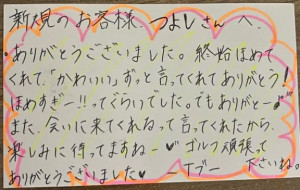 新規のお客様 つよしさんへ
・ありがとうございました。終始ほめて
くれて、「かわいい」ずっと言ってくれてありがとう!
ほめすぎー!!ってぐらいでした。でもありがとー
また、会いに来てくれるって言ってくれたから、
楽しみに待ってますねー♡ ゴルフ頑張って
ありがとうございました♥ 下さいね。